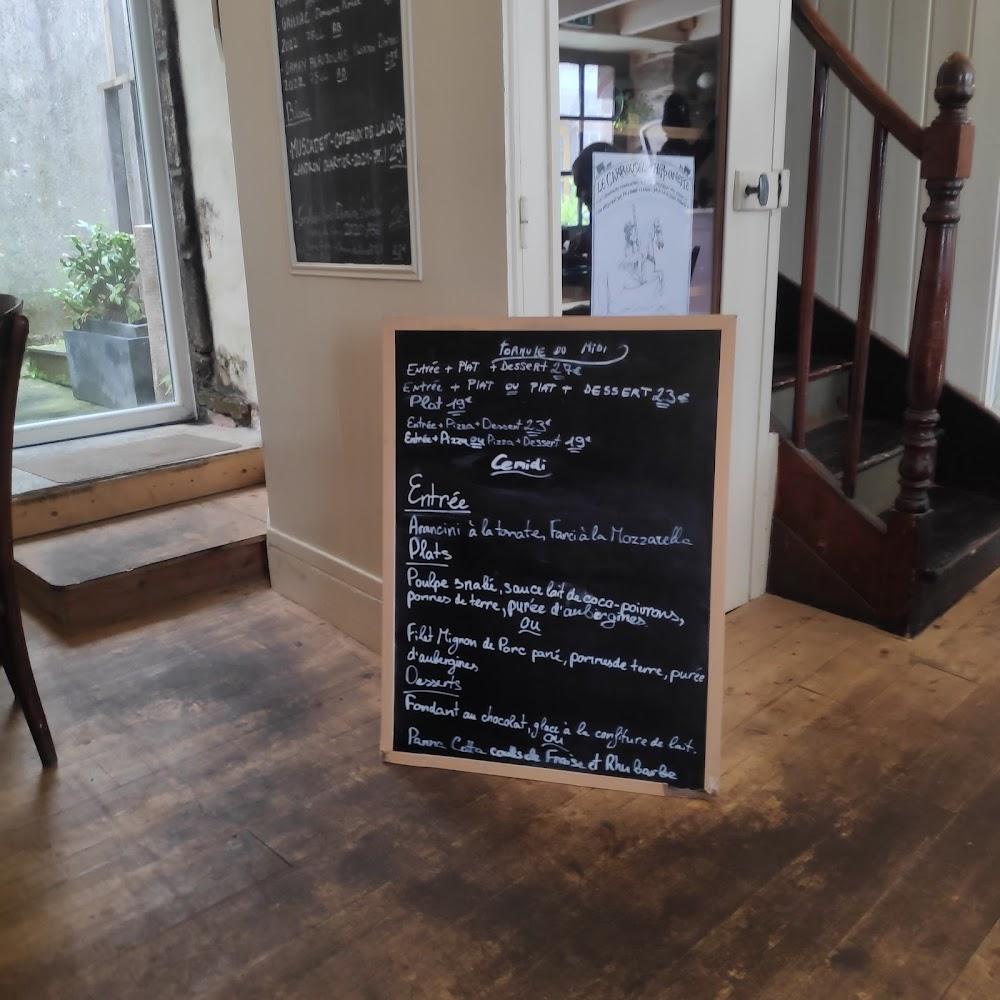 GAILLAC
2022 75CL
2022 75CL
Blanc
MUSCADET-COTEAUX DE LA LOIRE
LANDRON CHARTIER-2021-75CL 29€
LE CARROUSEL
FORMULE DU MIDI
ENTRÉE + PLAT + DESSERT 27€
ENTRÉE + PLAT OU PLAT + DESSERT 23€
Plat 19€
Entrée + Pizza + Dessert 23€
Entrée + Pizza ou Pizza + Dessert 19€
Ce midi
Entrée
Arancini à la tomate, Farci à la Mozzarella
Plats
Poulpe snaké, sauce lait de coco-poivrons,
pommes de terre, purée d'aubergines
OU
Filet Mignon de Porc pané, pommes de terre, purée
d'aubergines
Desserts
Fondant au chocolat, glace à la confiture de lait.
OU
Panna Cotta coulis de Fraise et Rhubarbe